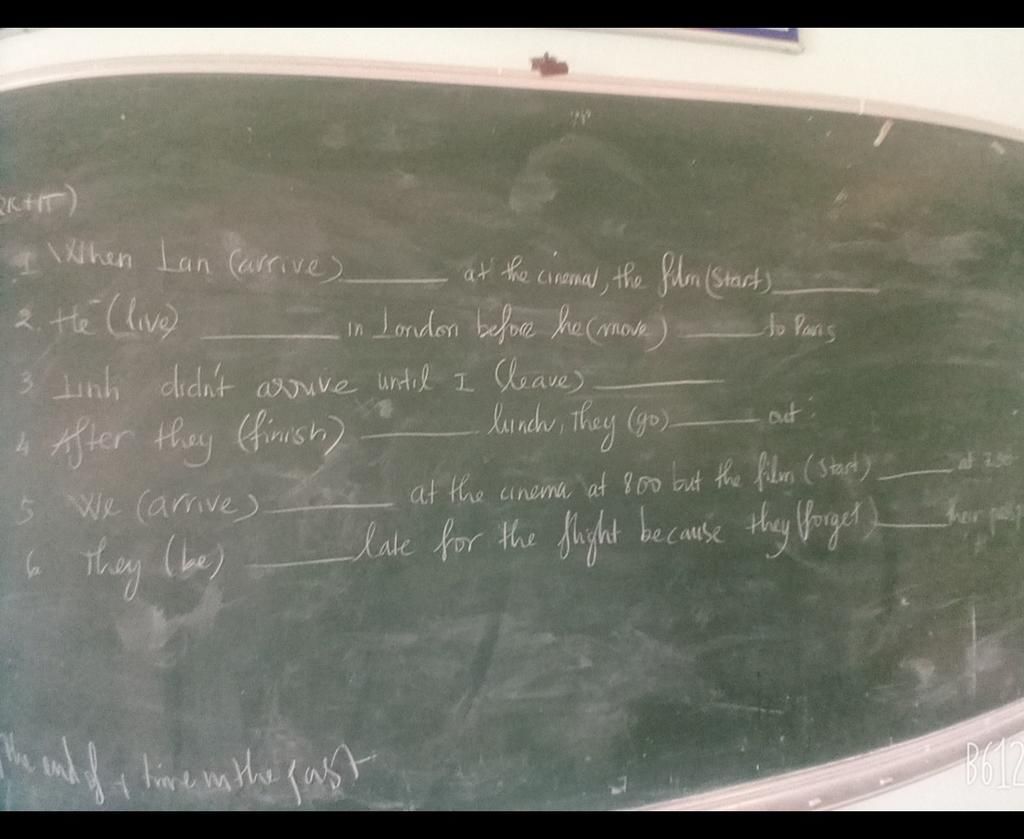 1 When Lan (arrive) ______ at the cinema, the film (start) ______
2. He (live) ______ in London before he (move) ______ to Paris
3 Linh didn't arrive until I (leave) ______
4 After they (finish) ______ lunch, they (go) ______ out.
5 We (arrive) ______ at the cinema at 800 but the film (start) ______ at
6. They (be) ______ late for the flight because they (forget) ______ their
the end of + time in the past
B612